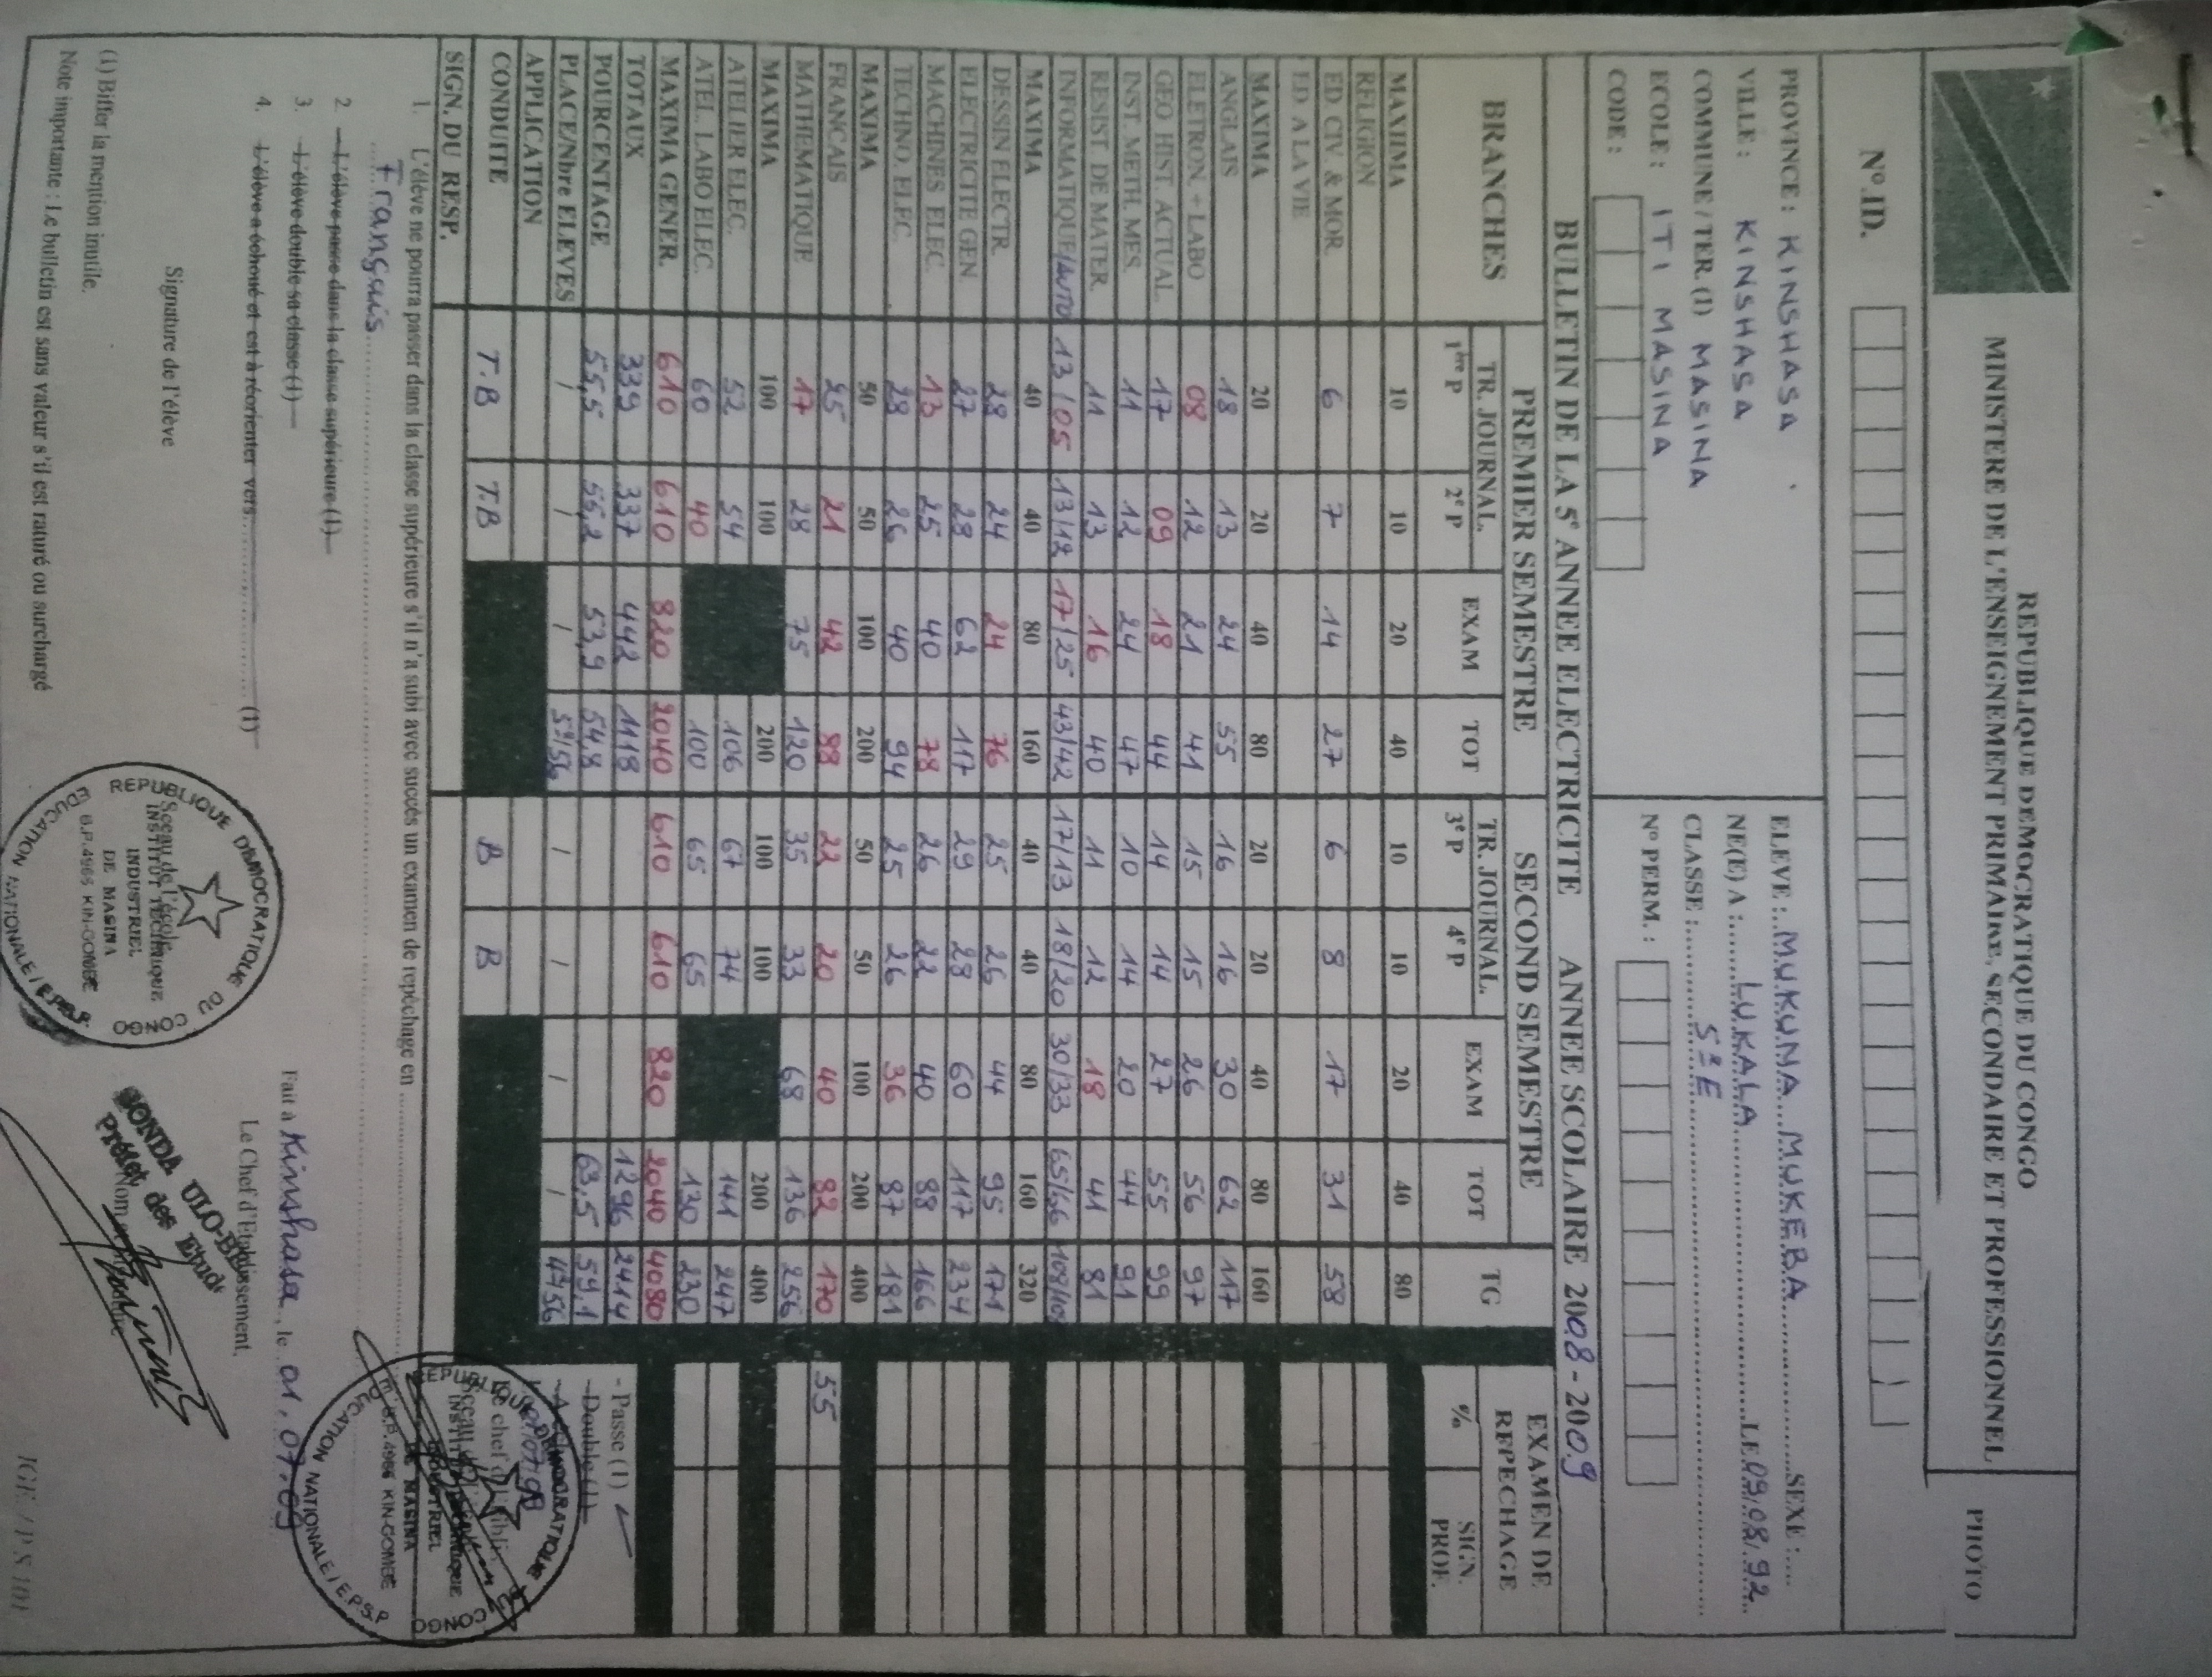 REPUBLIQUE DEMOCRATIQUE DU CONGO
MINISTERE DE L'ENSEIGNEMENT PRIMAIRE, SECONDAIRE ET PROFESSIONNEL
PHOTO
N° ID.
PROVINCE : KINSHASA
VILLE : KINSHASA
COMMUNE / TER. (1) MASINA
ECOLE : ITI MASINA
CODE :
ELEVE : MUKUNA MUKEBA SEXE :
NE(E) A : LUKALA LE 09.08.92
CLASSE : 5e E
N° PERM. :
BULLETIN DE LA 5e ANNEE ELECTRICITE ANNEE SCOLAIRE 2008 - 2009
BRANCHES PREMIER SEMESTRE SECOND SEMESTRE TG EXAMEN DE REPECHAGE
TR. JOURNAL. EXAM TOT TR. JOURNAL. EXAM TOT % SIGN. PROF.
1ère P 2e P 3e P 4e P
MAXIMA 10 10 20 40 10 10 20 40 80
RELIGION
ED CIV. & MOR. 6 7 14 27 6 8 17 31 58
ED. A LA VIE
MAXIMA 20 20 40 80 20 20 40 80 160
ANGLAIS 18 13 24 55 16 16 30 62 117
ELETRON. + LABO 08 12 21 41 15 15 26 56 97
GEO HIST. ACTUAL. 17 09 18 44 14 14 27 55 99
INST. METH. MES. 11 12 24 47 10 14 20 44 91
RESIST. DE MATER. 11 13 16 40 11 12 18 41 81
INFORMATIQUE/AUTO 13/05 13/12 17/25 43/42 17/13 18/20 30/33 65/66
MAXIMA 40 40 80 160 40 40 80 160 320
DESSIN ELECTR. 28 24 24 76 25 26 44 95 171
ELECTRICITE GEN. 27 28 62 117 29 28 60 117 234
MACHINES ELEC. 13 25 40 78 26 22 40 88 166
TECHNO. ELEC. 28 26 40 94 25 26 36 87 181
MAXIMA 50 50 100 200 50 50 100 200 400
FRANCAIS 25 21 42 88 22 20 40 82 170 55
MATHEMATIQUE 17 28 75 120 35 33 68 136 256
MAXIMA 100 100 200 100 100 200 400
ATELIER ELEC. 52 54 106 67 74 141 247
ATEL. LABO ELEC. 60 40 100 65 65 130 230
MAXIMA GENER. 610 610 820 2040 610 610 820 2040 4080
TOTAUX 339 337 442 1118 1296 2414
POURCENTAGE 55,5 55,2 53,9 54,8 63,5 59,1
PLACE/Nbre ELEVES / / / 5e/56 / / / /
APPLICATION
CONDUITE T.B T.B B B
SIGN. DU RESP.
- Passe (1)
- Double (1)
1. L'élève ne pourra passer dans la classe supérieure s'il n'a subi avec succès un examen de repêchage en
Français
2. L'élève passe dans la classe supérieure (1)
3. L'élève double sa classe (1)
4. L'élève a échoué et est à réorienter vers (1)
Fait à Kinshasa, le 01, 07, 09
Le Chef d'Etablissement,
Signature de l'élève
Sceau de l'école
REPUBLIQUE DEMOCRATIQUE DU CONGO
INSTITUT TECHNIQUE
INDUSTRIEL
DE MASINA
B.P. 4966 KIN-GOMBE
EDUCATION NATIONALE / E.P.S.P.
Préfet des Etudes
REPUBLIQUE DEMOCRATIQUE DU CONGO
B.P. 4966 KIN-GOMBE
EDUCATION NATIONALE / E.P.S.P
(1) Biffer la mention inutile.
Note importante : Le bulletin est sans valeur s'il est raturé ou surchargé